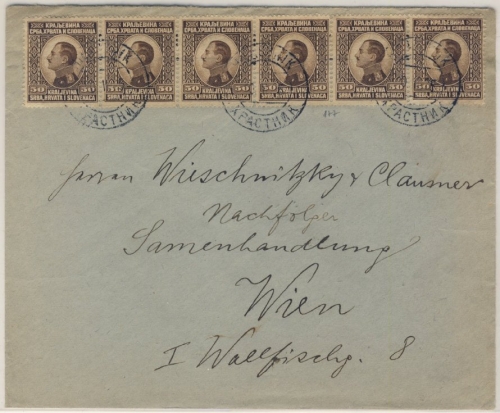 КРАЉЕВИНА КРАЉЕВИНА КРАЉЕВИНА КРАЉЕВИНА КРАЉЕВИНА КРАЉЕВИНА
СРБА, ХРВАТА И СЛОВЕНАЦА СРБА, ХРВАТА И СЛОВЕНАЦА СРБА, ХРВАТА И СЛОВЕНАЦА СРБА, ХРВАТА И СЛОВЕНАЦА СРБА, ХРВАТА И СЛОВЕНАЦА СРБА, ХРВАТА И СЛОВЕНАЦА
50 50 50 50 50 50 50 50 50 50 50 50
KRALJEVINA KRALJEVINA KRALJEVINA KRALJEVINA KRALJEVINA KRALJEVINA
SRBA, HRVATA I SLOVENACA SRBA, HRVATA I SLOVENACA SRBA, HRVATA I SLOVENACA SRBA, HRVATA I SLOVENACA SRBA, HRVATA I SLOVENACA SRBA, HRVATA I SLOVENACA
ХРАСТНИК ХРАСТНИК ХРАСТНИК
Herren Wieschnitzky & Clauser
Nachfolger
Samenhandlung
Wien
I Wallfischg. 8